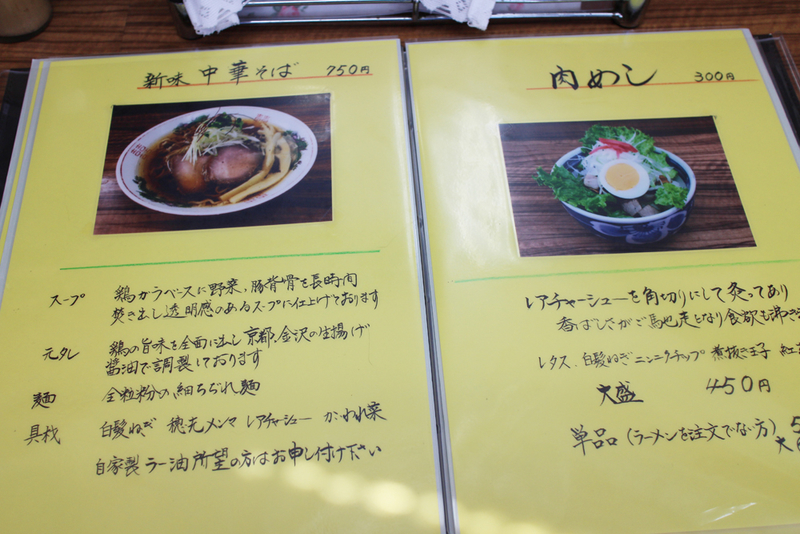 新味 中華そば 750円
スープ 鶏ガラベースに野菜、豚背骨を長時間
焚き出し透明感のあるスープに仕上げております
元タレ 鶏の旨味を全面に出し京都、金沢の生揚げ
醤油で調製しております
麺 全粒粉の細ちぢれ麺
具材 白髪ねぎ 穂先メンマ レアチャーシュー かいわれ菜
自家製ラー油所望の方はお申し付け下さい
肉めし 300円
レアチャーシューを角切りにして炙ってあり
香ばしさがご馬也走となり食欲も沸き
レタス、白髪ねぎ ニンニクチップ 煮抜き玉子 紅
大盛 450円
単品(ラーメンを注文でない方) 5
大